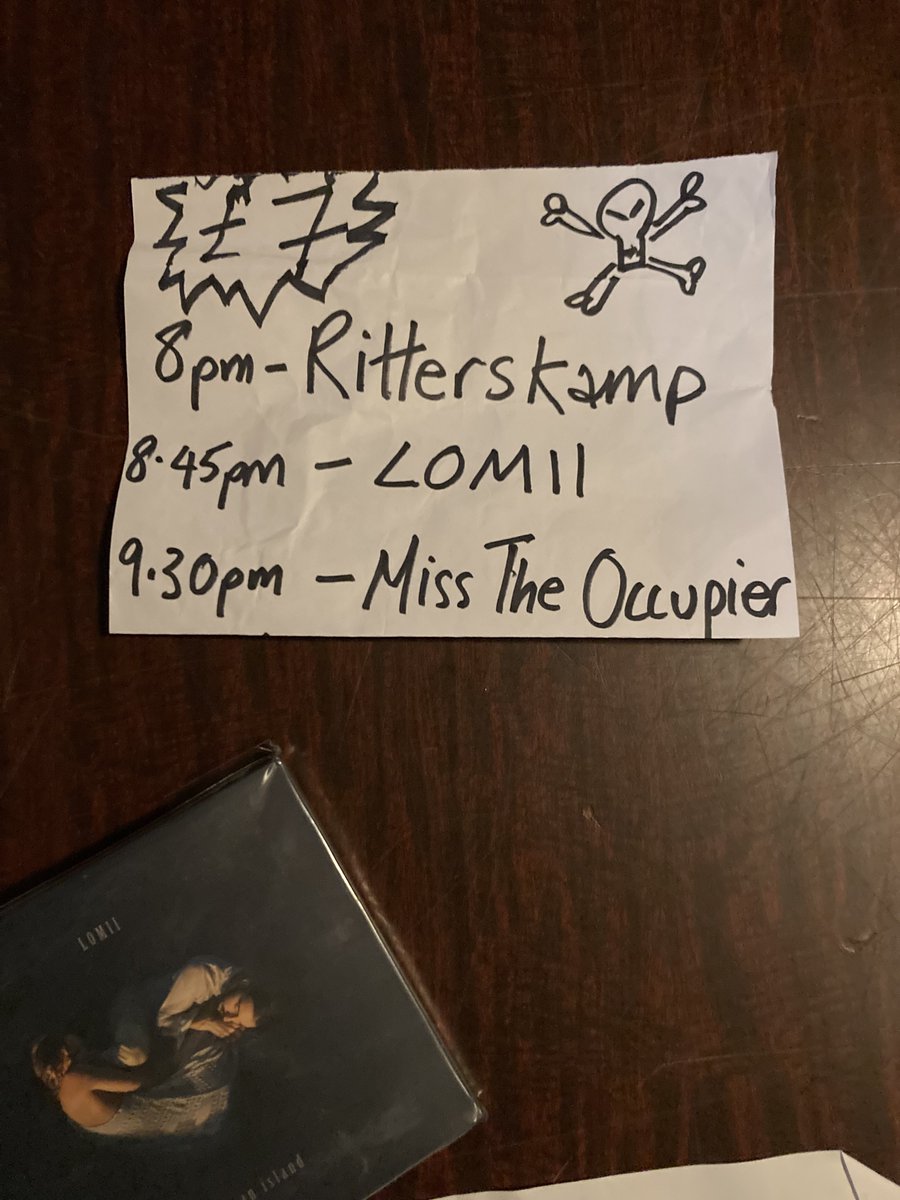 £7
8pm - Ritterskamp
8.45pm - LOMII
9.30pm - Miss The Occupier
LOMII
island